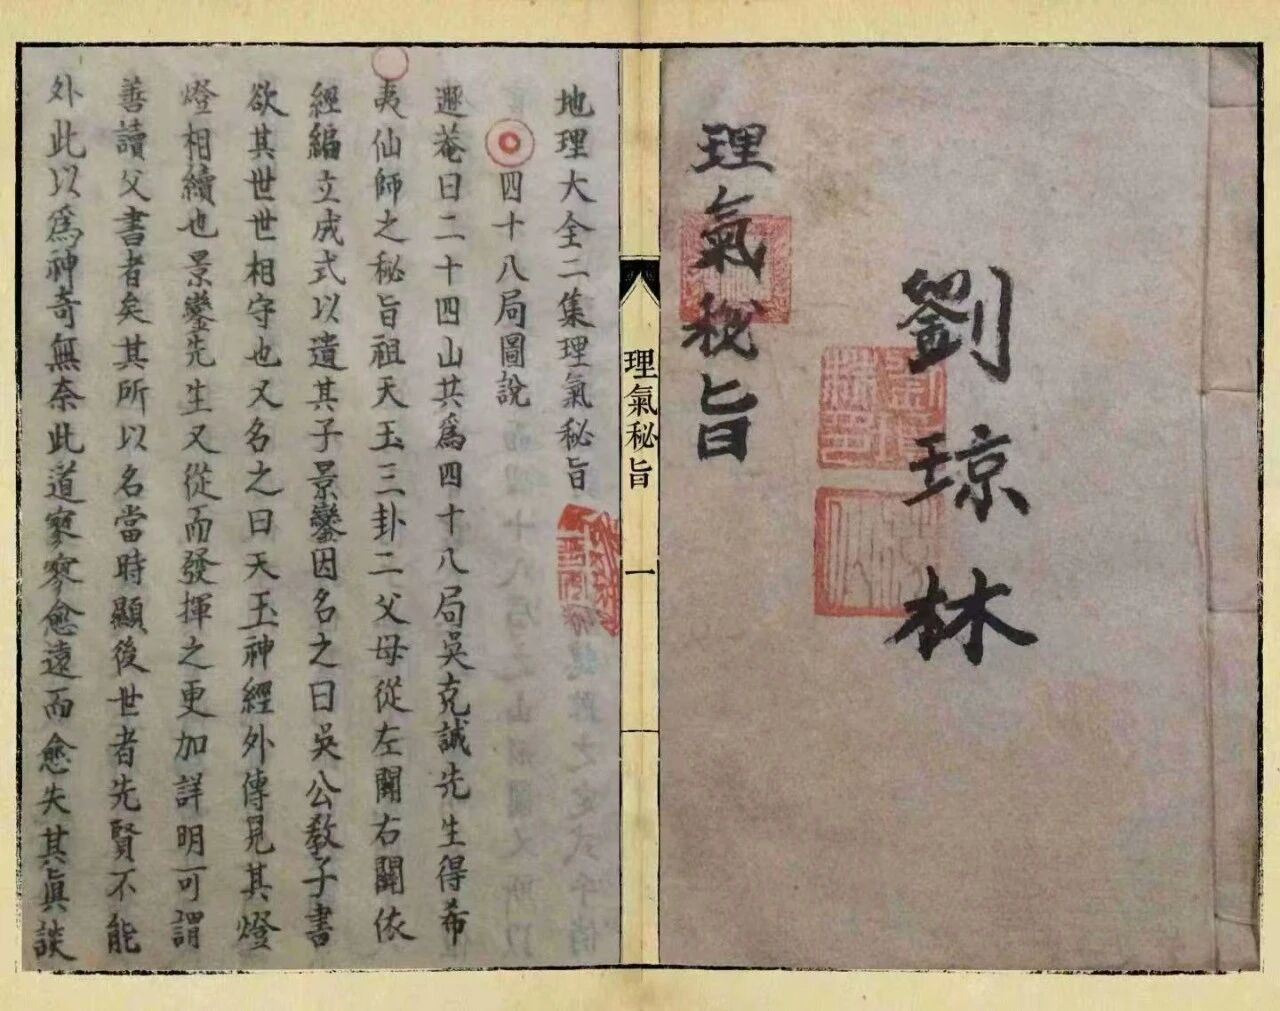 劉琼林
理氣秘旨
理氣秘旨 一
地理大全二集理氣秘旨
四十八局圖說
遯菴曰二十四山共爲四十八局吳克誠先生得希
夷仙師之秘旨祖天玉三卦二父母從左關右關依
經編立成式以遺其子景鸞因名之曰吳公教子書
欲其世世相守也又名之曰天玉神經外傳見其燈
燈相續也景鸞先生又從而發揮之更加詳明可謂
善讀父書者矣其所以名當時顯後世者先賢不能
外此以爲神奇無奈此道寥寥愈遠而愈失其眞談